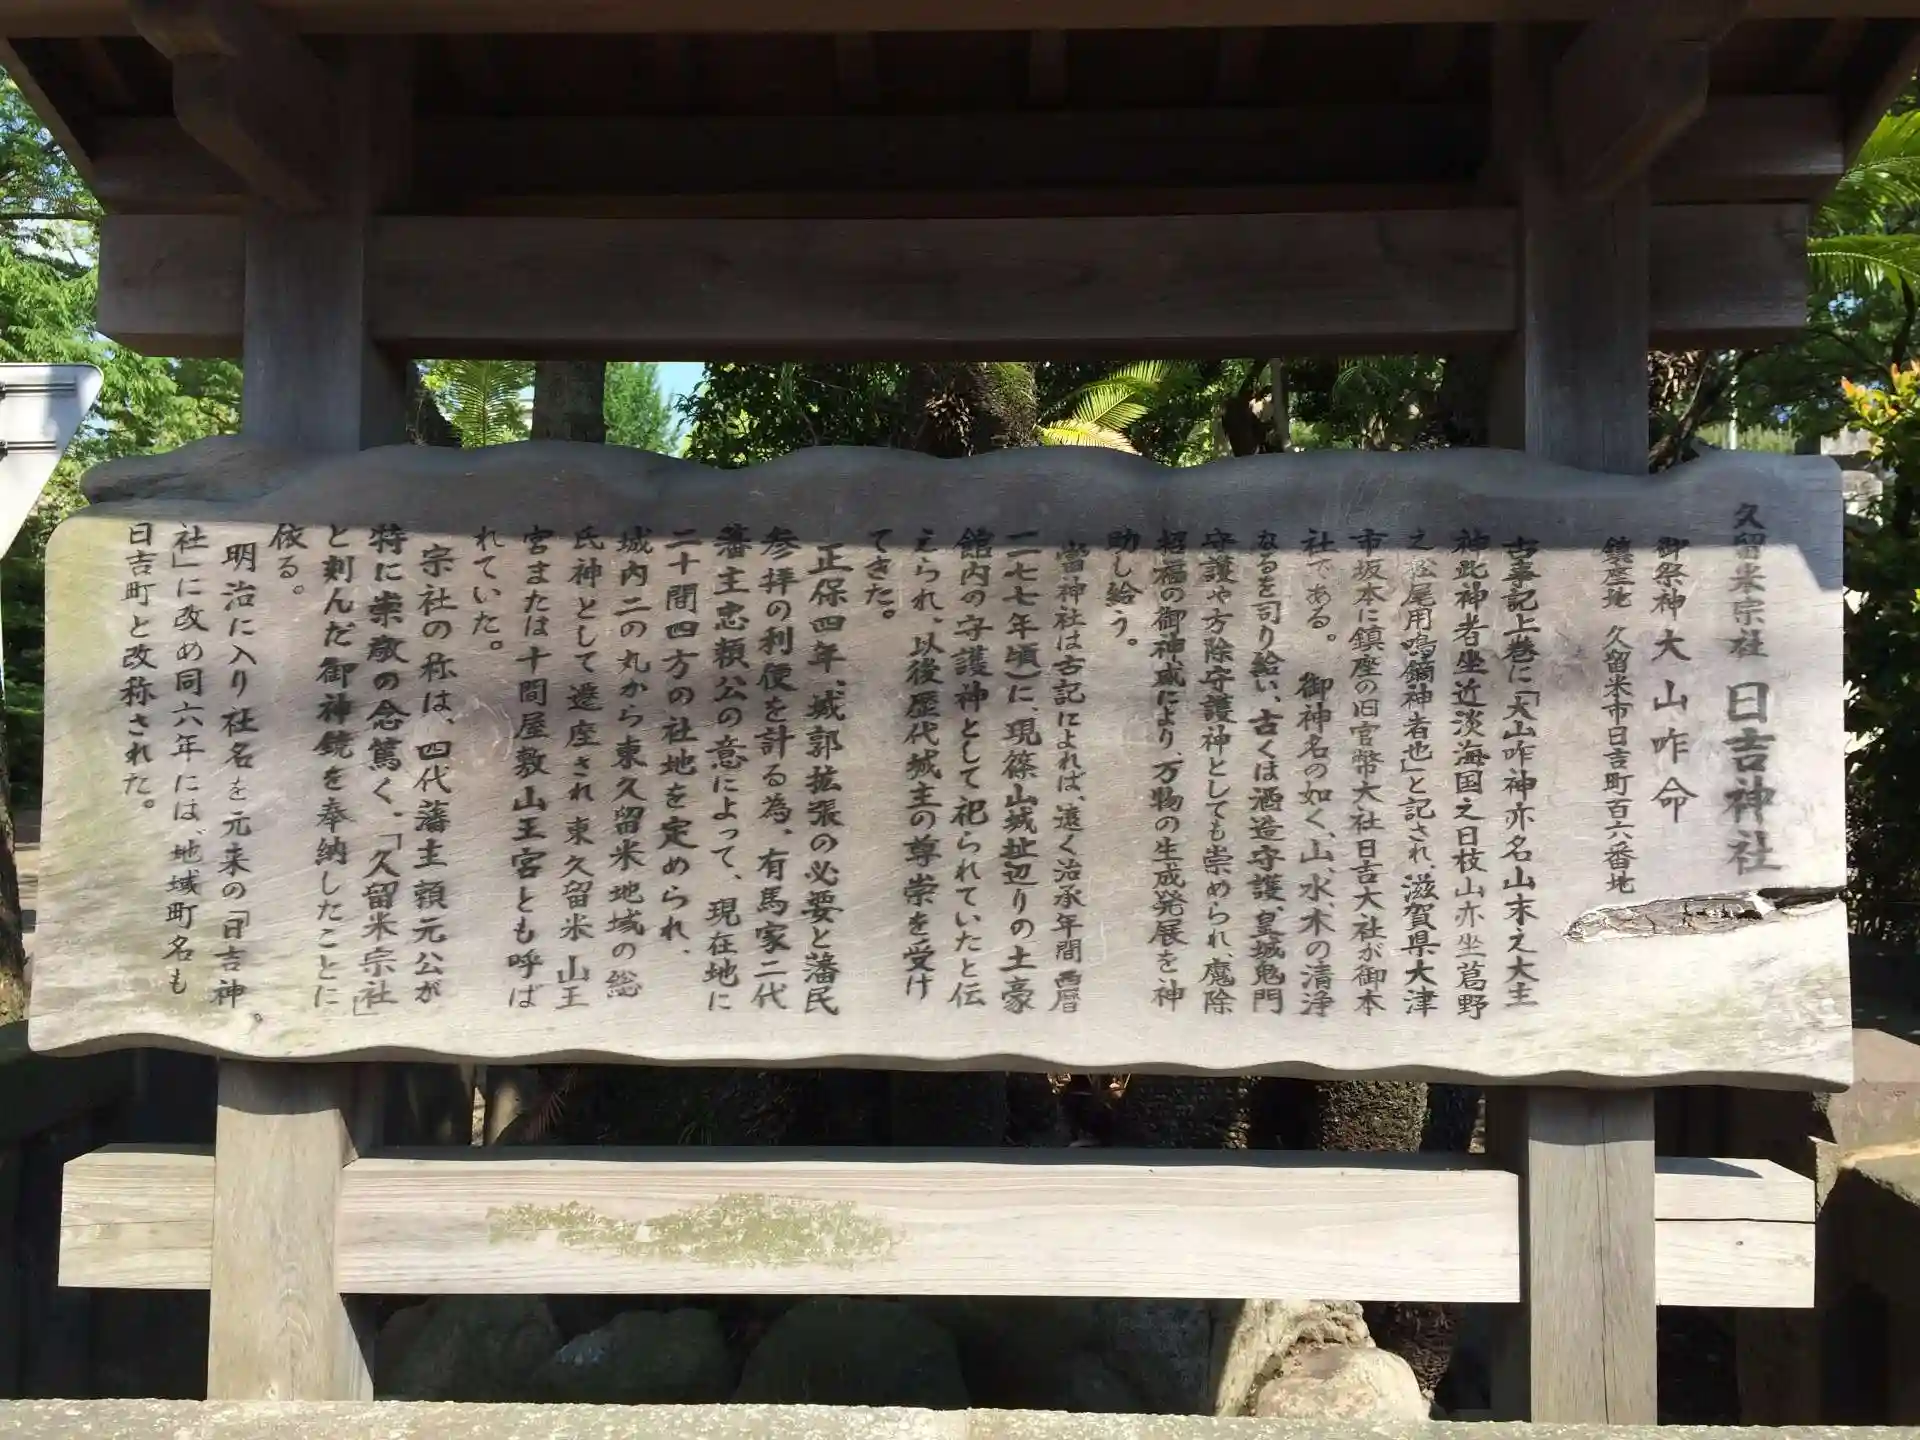 久留米宗社 日吉神社
御祭神 大山咋命
鎮座地 久留米市日吉町百六番地
古事記上巻に「大山咋神亦名山末之大主
神此神者坐近淡海国之日枝山亦坐葛野
之松尾用鳴鏑神者也」と記され、滋賀県大津
市坂本に鎮座の旧官幣大社日吉大社が御本
社である。 御神名の如く、山、水、木の清浄
なるを司り給い、古くは酒造守護、皇城鬼門
守護や方除守護神としても崇められ、魔除
招福の御神威により、万物の生成発展を神
助し給う。
當神社は古記によれば、遠く治承年間(西暦
一一七七年頃)に、現篠山城址辺りの土豪
館内の守護神として祀られていたと伝
えられ、以後歴代城主の尊崇を受け
てきた。
正保四年、城郭拡張の必要と藩民
参拝の利便を計る為、有馬家二代
藩主忠頼公の意によって、現在地に
二十間四方の社地を定められ、
城内二の丸から東久留米地域の総
氏神として遷座され東久留米山王
宮または十間屋敷山王宮とも呼ば
れていた。
宗社の称は、四代藩主頼元公が
特に崇敬の念篤く、「久留米宗社」
と刻んだ御神鏡を奉納したことに
依る。
明治に入り社名を元来の「日吉神
社」に改め同六年には、地域町名も
日吉町と改称された。